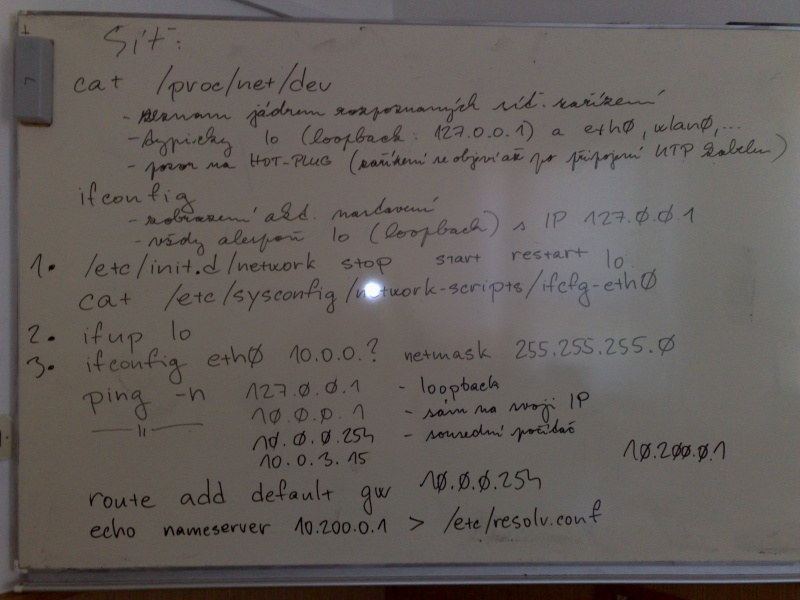 Síť:
cat /proc/net/dev
- seznam jádrem rozpoznaných síť. zařízení
- typicky lo (loopback: 127.0.0.1) a ethØ, wlanØ, ...
- pozor na HOT-PLUG (zařízení se objeví až po připojení UTP kabelu)
ifconfig
- zobrazení akt. nastavení
- vždy alespoň lo (loopback) s IP 127.Ø.Ø.1
1. /etc/init.d/network stop start restart lo
cat /etc/sysconfig/network-scripts/ifcfg-ethØ
2. ifup lo
3. ifconfig ethØ 10.0.0.? netmask 255.255.255.Ø
ping -n 127.Ø.Ø.1 - loopback
—"— 1Ø.Ø.Ø.1 - sám na svoji IP
1Ø.Ø.Ø.254 - sousední počítač
10.0.3.15 1Ø.2ØØ.Ø.1
route add default gw 1Ø.Ø.Ø.254
echo nameserver 10.200.0.1 > /etc/resolv.conf